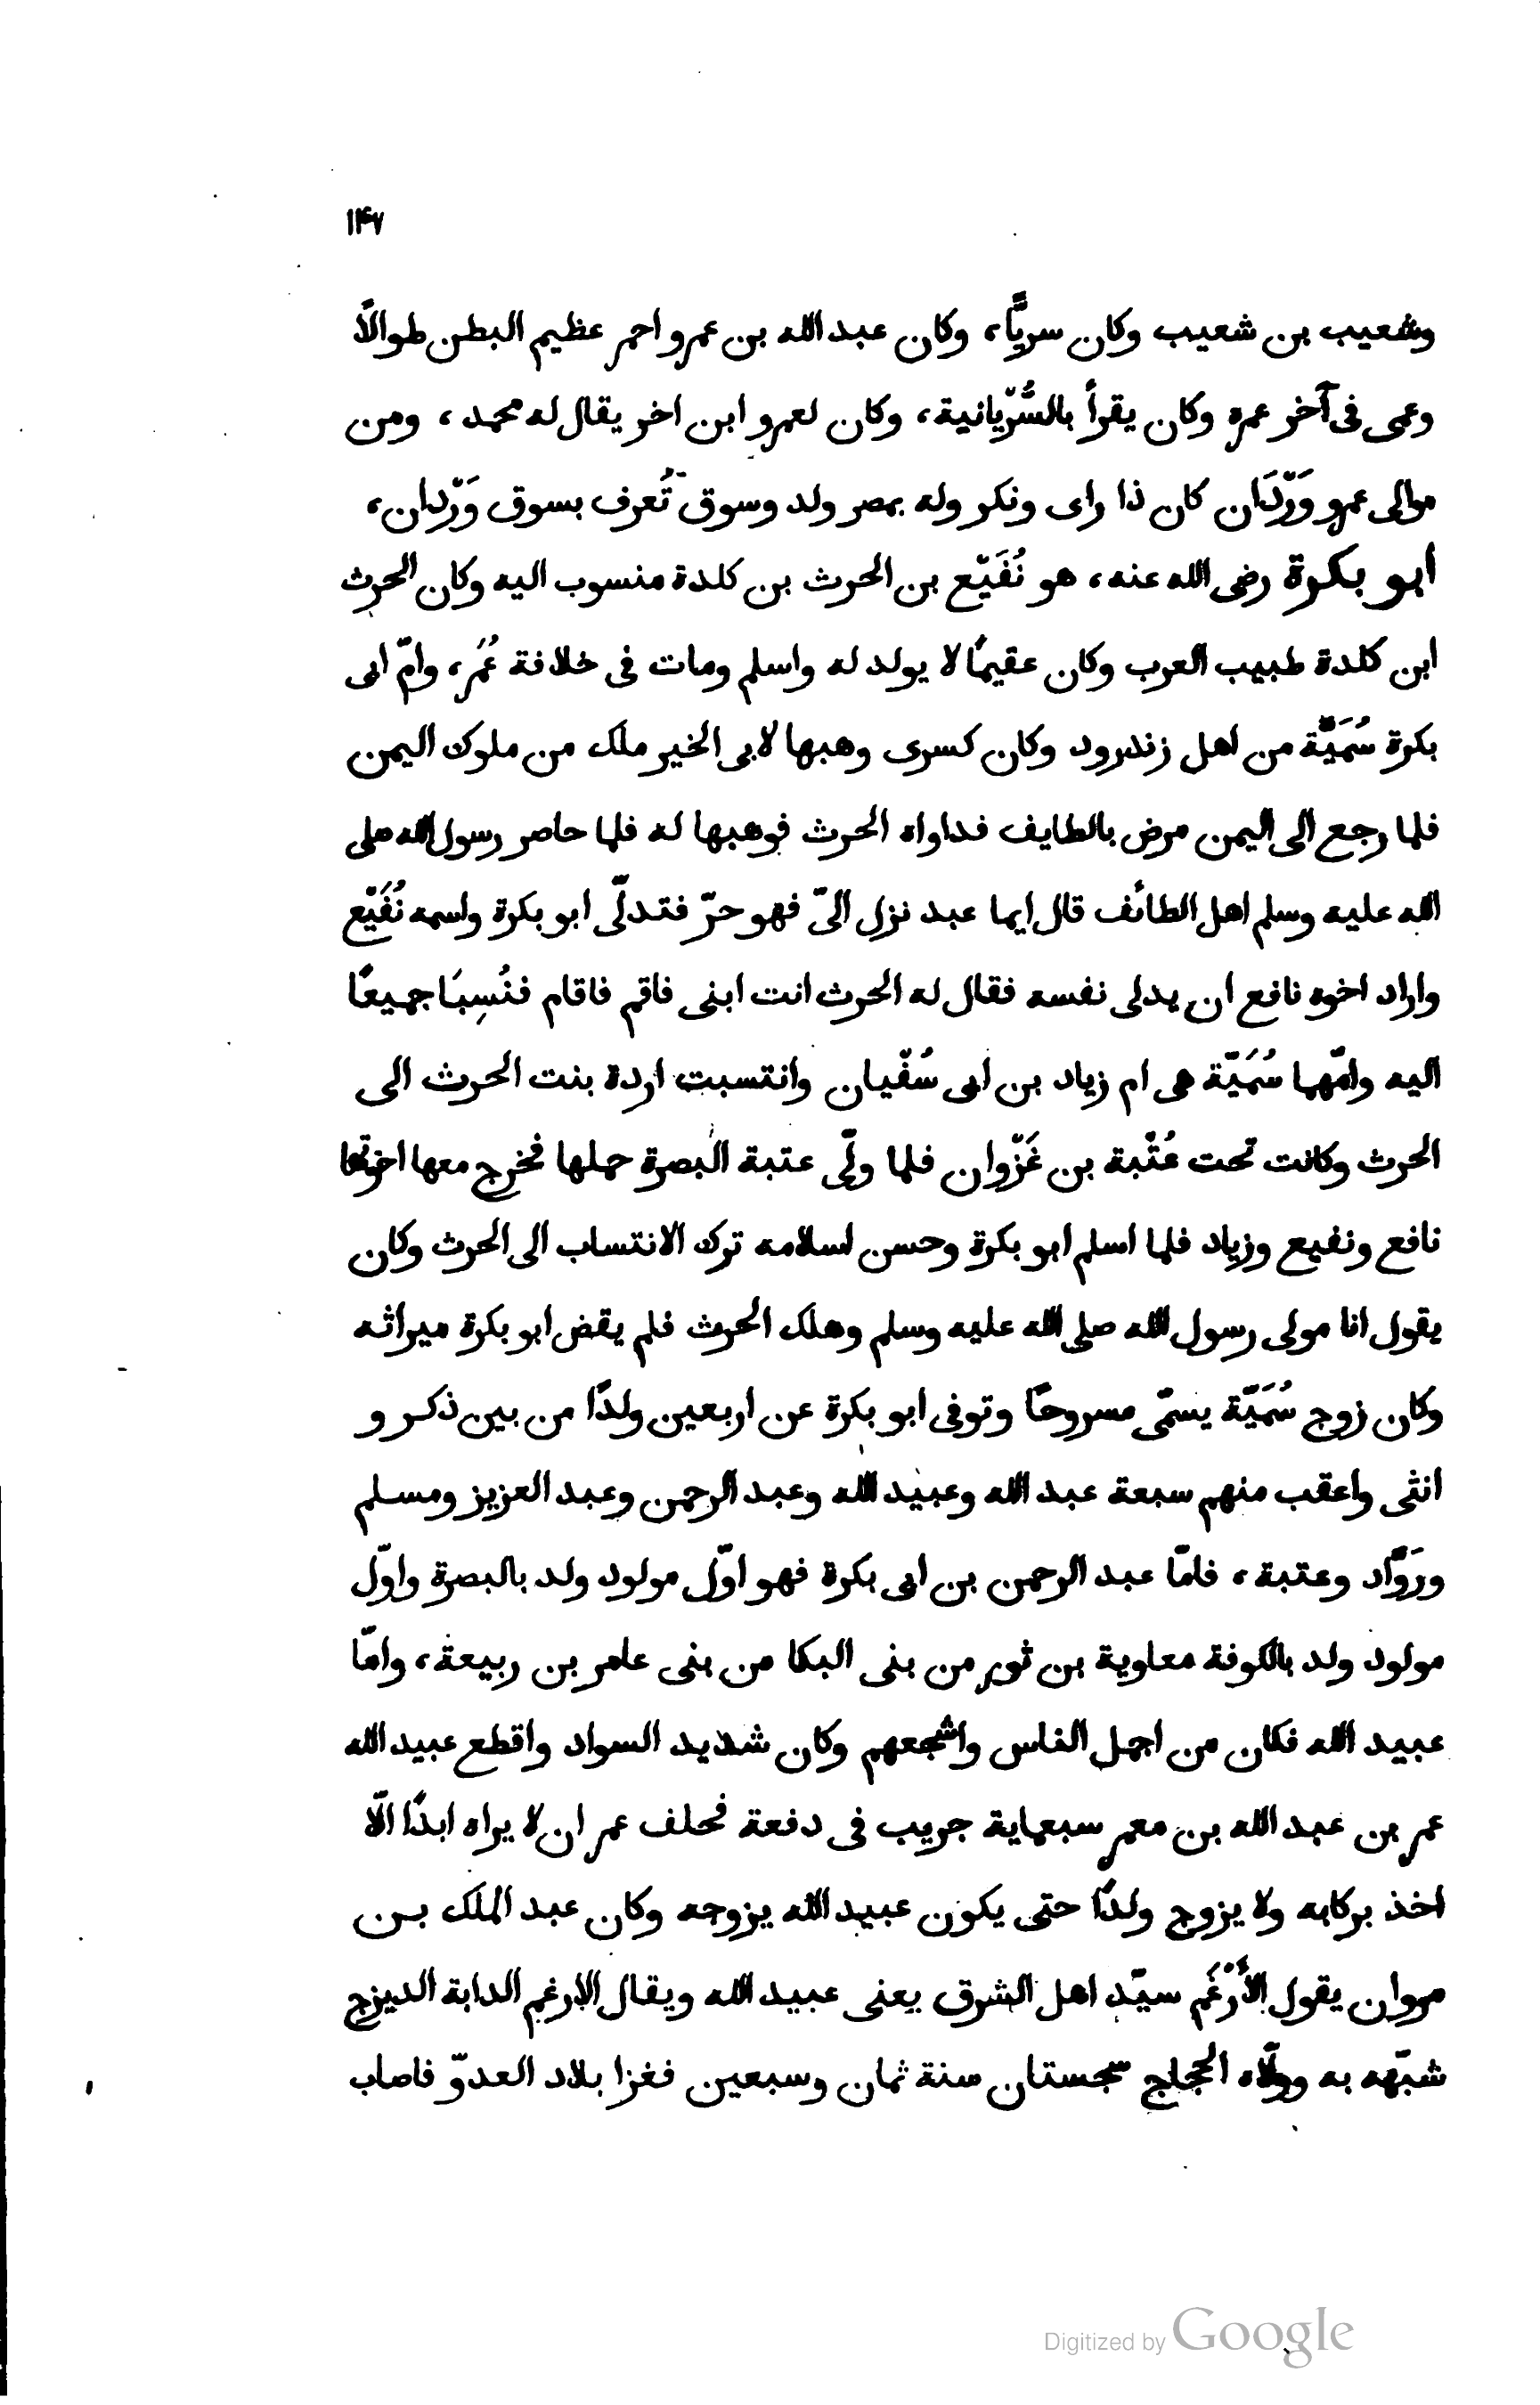 ١٤٧
وشعيب بن شعيب وكان سريًّا، وكان عبد الله بن عمرو احمر عظيم البطن طوالًا
وعمى فى آخر عمره وكان يقرأ بالسُّرْيانية، وكان لعمرو ابن اخر يقال له محمد، ومن
موالى عمرو وَرْدَان كان ذا راى ونكر وله بمصر ولد وسوق تُعرف بسوق وَرْدان،
ابو بكرة رضى الله عنه، هو نُفَيْع بن الحرث بن كلدة منسوب اليه وكان الحرث
ابن كلدة طبيب العرب وكان عقيمًا لا يولد له واسلم ومات فى خلافة عُمَر، وامّ ابى
بكرة سُمَيَّة من اهل زندرود وكان كسرى وهبها لابى الخير ملك من ملوك اليمن
فلما رجع الى اليمن مرض بالطايف فداواه الحرث فوهبها له فلما حاصر رسول الله صلى
الله عليه وسلم اهل الطائف قال ايما عبد نزل الىّ فهو حرّ فتدلّى ابو بكرة واسمه نُفَيْع
واراد اخوه نافع ان يدلى نفسه فقال له الحرث انت ابنى فاقم فاقام فنُسِبَا جميعًا
اليه وامّهما سُمَيّة هى ام زياد بن ابى سُفْيان وانتسبت اردة بنت الحرث الى
الحرث وكانت تحت عُتْبة بن غَزْوان فلما ولّى عتبة البصرة حملها فخرج معها اخوتها
نافع ونفيع وزياد فلما اسلم ابو بكرة وحسن اسلامه ترك الانتساب الى الحرث وكان
يقول انا مولى رسول الله صلى الله عليه وسلم وهلك الحرث فلم يقض ابو بكرة ميراثه
وكان زوج سُمَيّة يسمّى مسروحًا وتوفى ابو بكرة عن اربعين ولدًا من بين ذكر و
انثى واعقب منهم سبعة عبد الله وعبيد الله وعبد الرحمن وعبد العزيز ومسلم
ورَوَّاد وعتبة، فامّا عبد الرحمن بن ابى بكرة فهو اوّل مولود ولد بالبصرة واوّل
مولود ولد بالكوفة معاوية بن ثور من بنى البكا من بنى عامر بن ربيعة، وامّا
عبيد الله فكان من اجمل الناس واشجعهم وكان شديد السواد واقطع عبيد الله
عمر بن عبد الله بن معمر سبعماية جريب فى دفعة فحلف عمر ان لا يراه ابدًا الّا
اخذ بركابه ولا يزوج ولدًا حتى يكون عبيد الله يزوجه وكان عبد الملك بن
مروان يقول الأَدْغَم سيّد اهل الشرق يعنى عبيد الله ويقال الادغم الدابة الديزج
شبّهه به وولّاه الحجاج سجستان سنة ثمان وسبعين فغزا بلاد العدوّ فاصاب
Digitized by Google